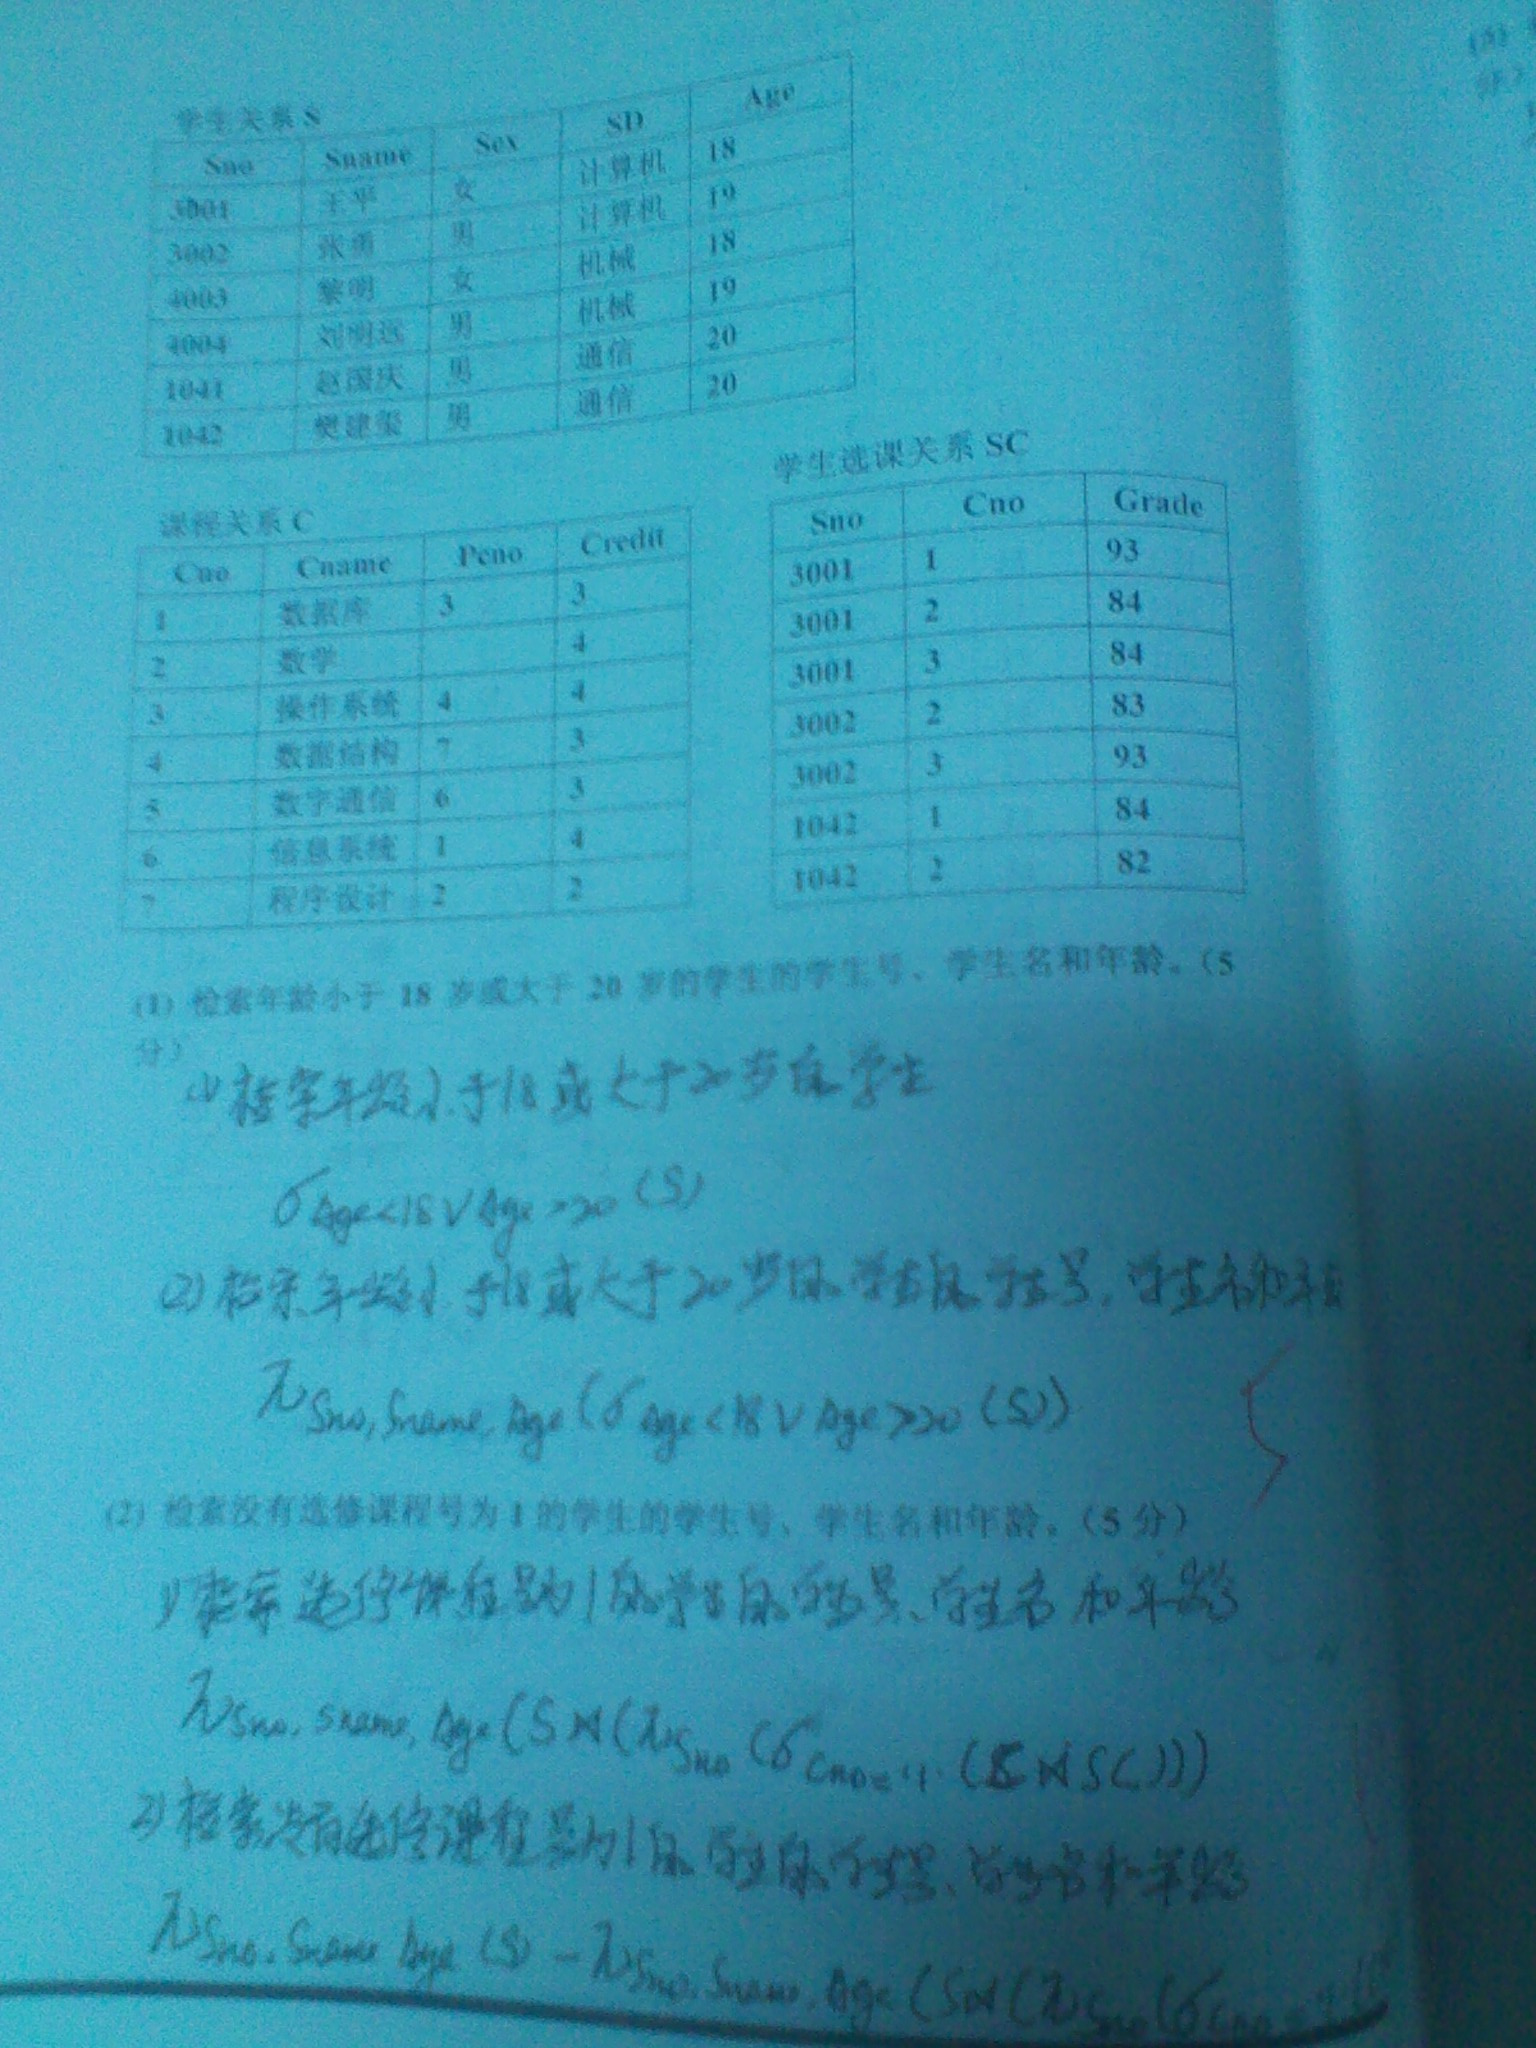 学生关系 S
Sno Sname Sex SD Age
3001 王平 女 计算机 18
3002 张勇 男 计算机 19
4003 黎明 女 机械 18
4004 刘明远 男 机械 19
1041 赵国庆 男 通信 20
1042 樊建玺 男 通信 20
课程关系 C
Cno Cname Pcno Credit
1 数据库 3 3
2 数学 4
3 操作系统 4 4
4 数据结构 7 3
5 数字通信 6 3
6 信息系统 1 4
7 程序设计 2 2
学生选课关系 SC
Sno Cno Grade
3001 1 93
3001 2 84
3001 3 84
3002 2 83
3002 3 93
1042 1 84
1042 2 82
(1) 检索年龄小于 18 岁或大于 20 岁的学生的学生号、学生名和年龄。(5
分)
1) 检索年龄小于18或大于20岁的学生
σ Age<18∨Age>20 (S)
(2) 检索年龄小于18或大于20岁的学生的学生号,学生名和年龄
π Sno,Sname,Age (σ Age<18∨Age>20 (S))
(2) 检索没有选修课程号为 1 的学生的学生号、学生名和年龄。(5 分)
1) 检索选修课程号为1的学生的学生号、学生名和年龄
π Sno,Sname,Age (S⋈(π Sno (σ Cno='1' (C⋈SC)))
2) 检索没有选修课程号为1的学生的学生号、学生名和年龄
π Sno,Sname,Age (S) - π Sno,Sname,Age (S⋈(π Sno (σ Cno=